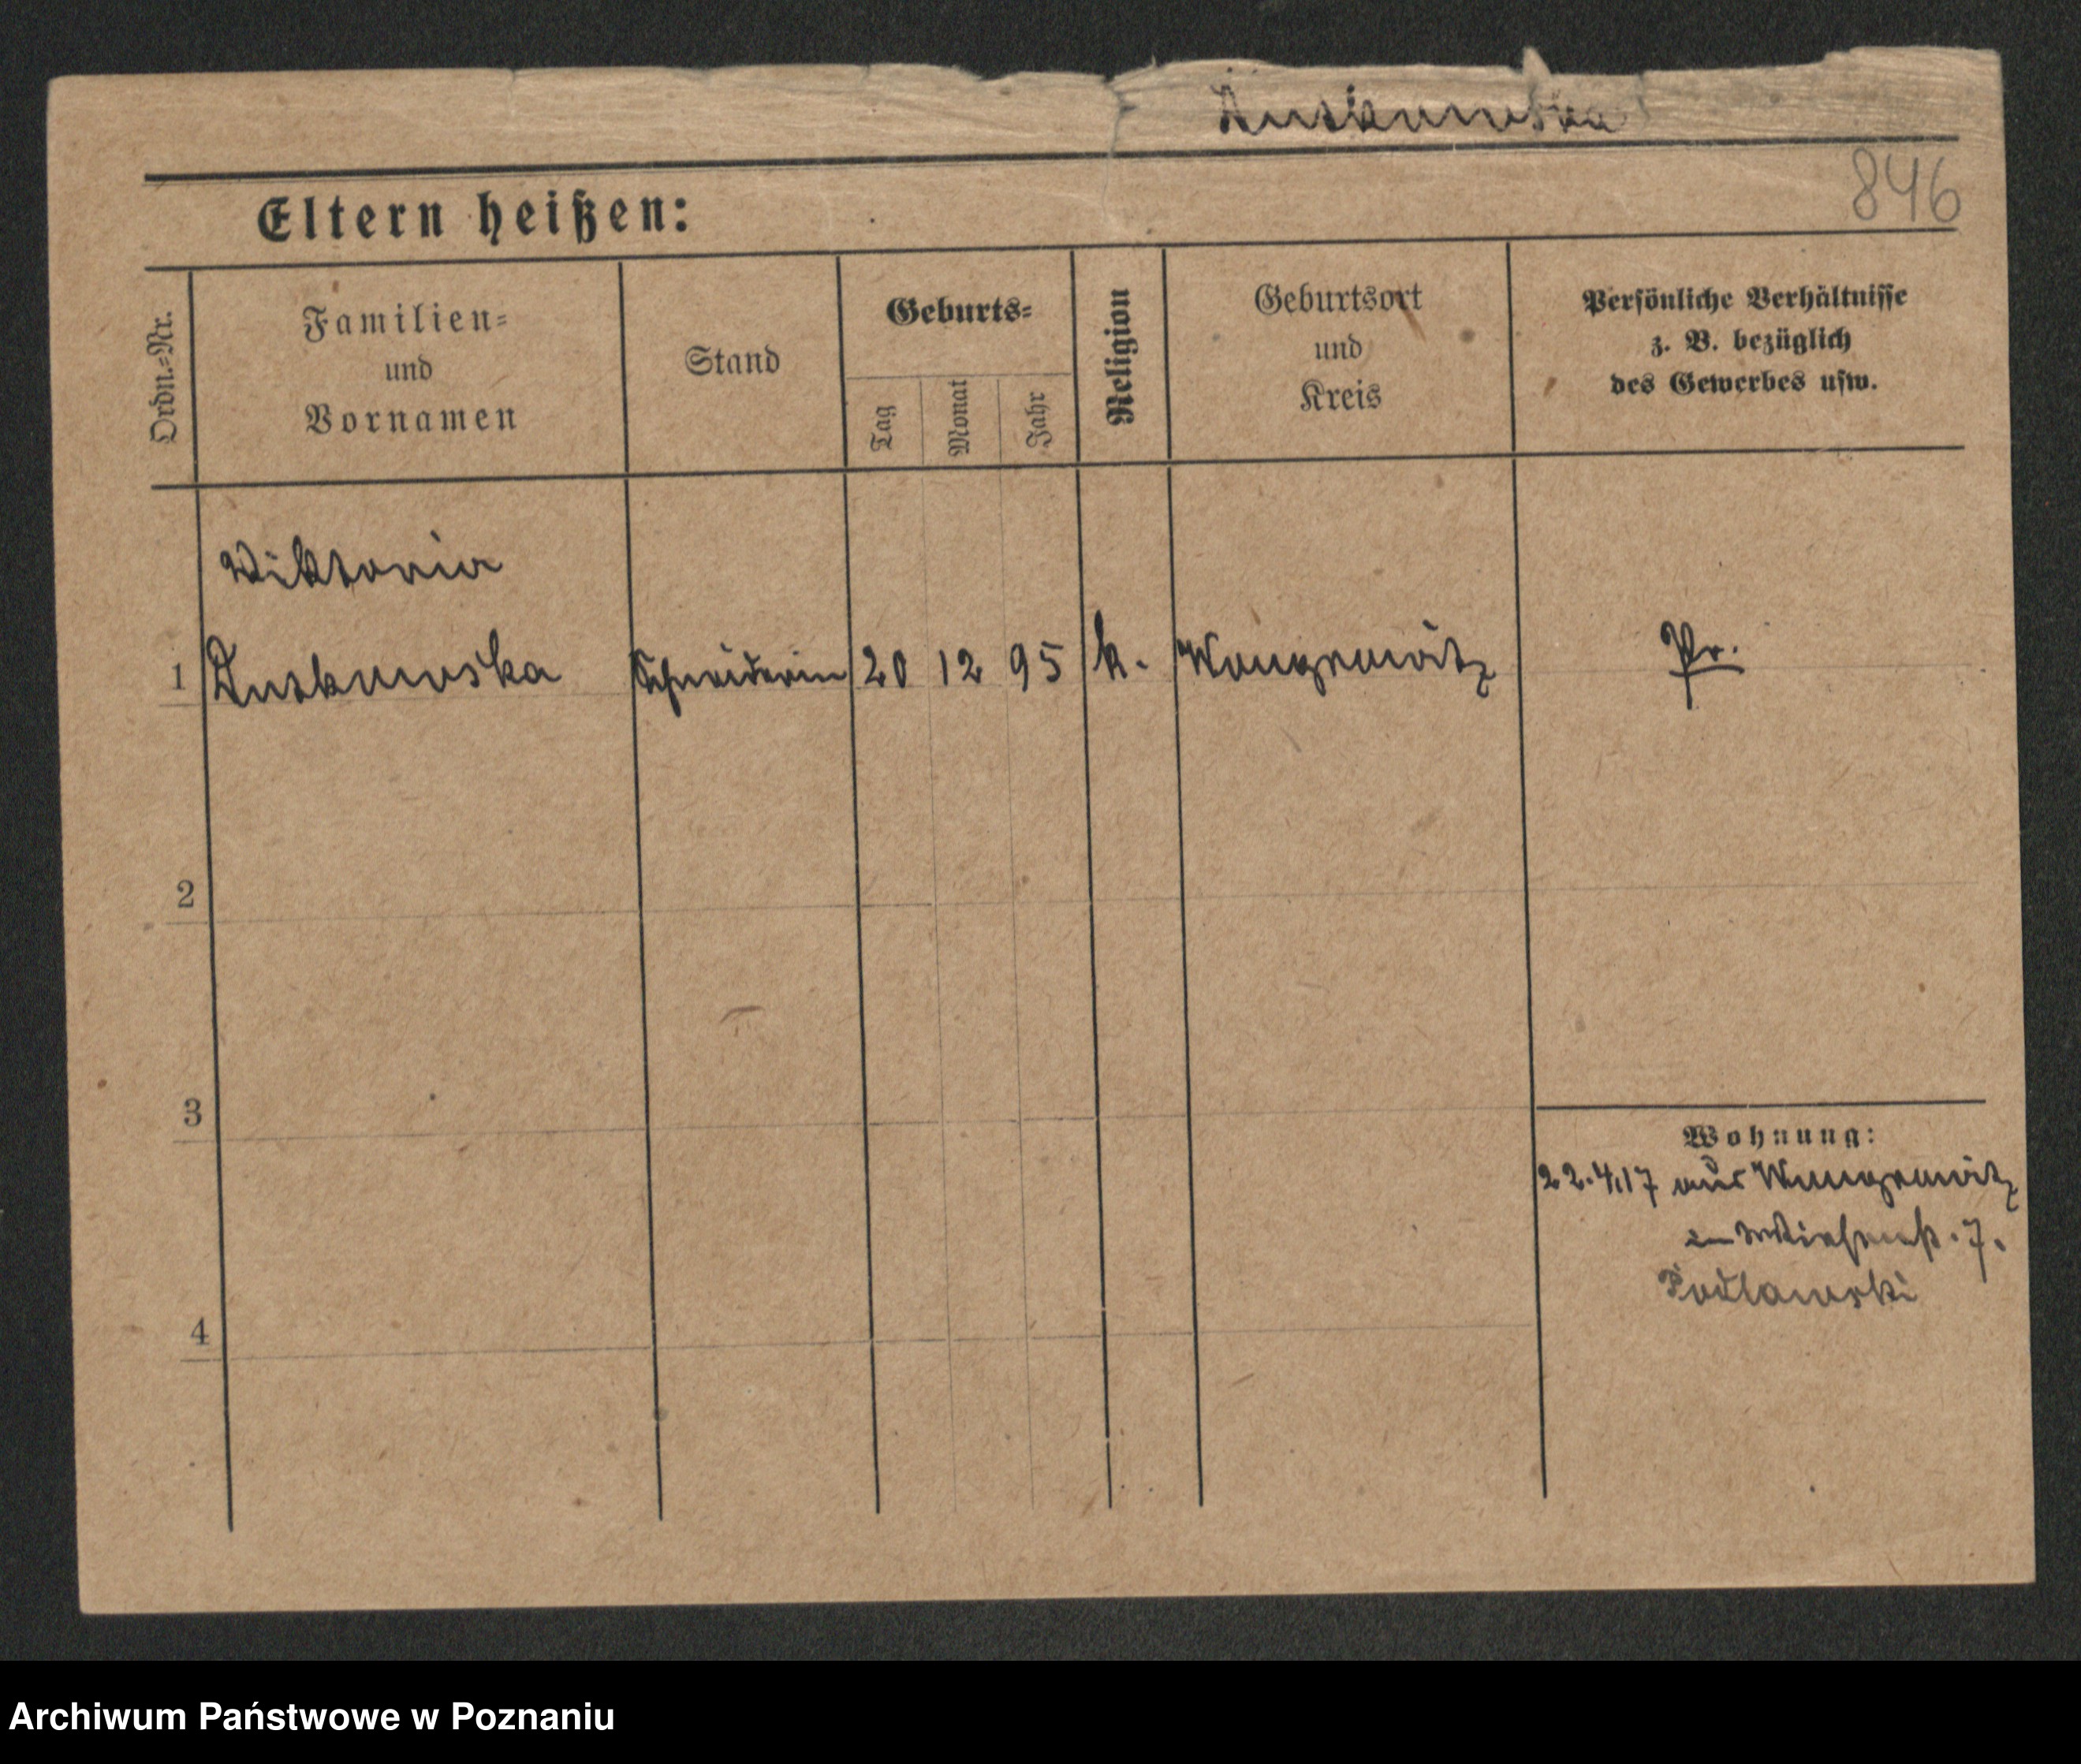 846
Eltern heißen:
Ordn.=Nr.
Familien=
und
Vornamen
Stand
Geburts=
Tag
Monat
Jahr
Religion
Geburtsort
und
Kreis
Persönliche Verhältnisse
z. B. bezüglich
des Gewerbes usw.
Viktoria
1 Schneiderin 20 12 95 k. Wongrowitz Pr.
2
3
Wohnung:
22.4.17 aus Wongrowitz
7.
4
Archiwum Państwowe w Poznaniu